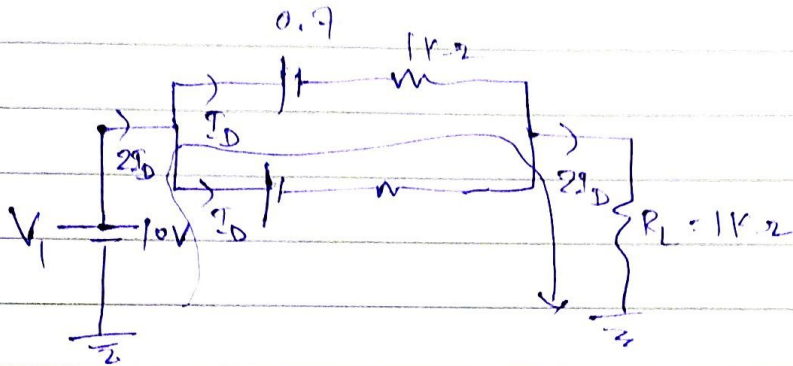 0.7
1K Ω
I_D
2I_D
I_D
2I_D
V_1
10V
R_L = 1K Ω